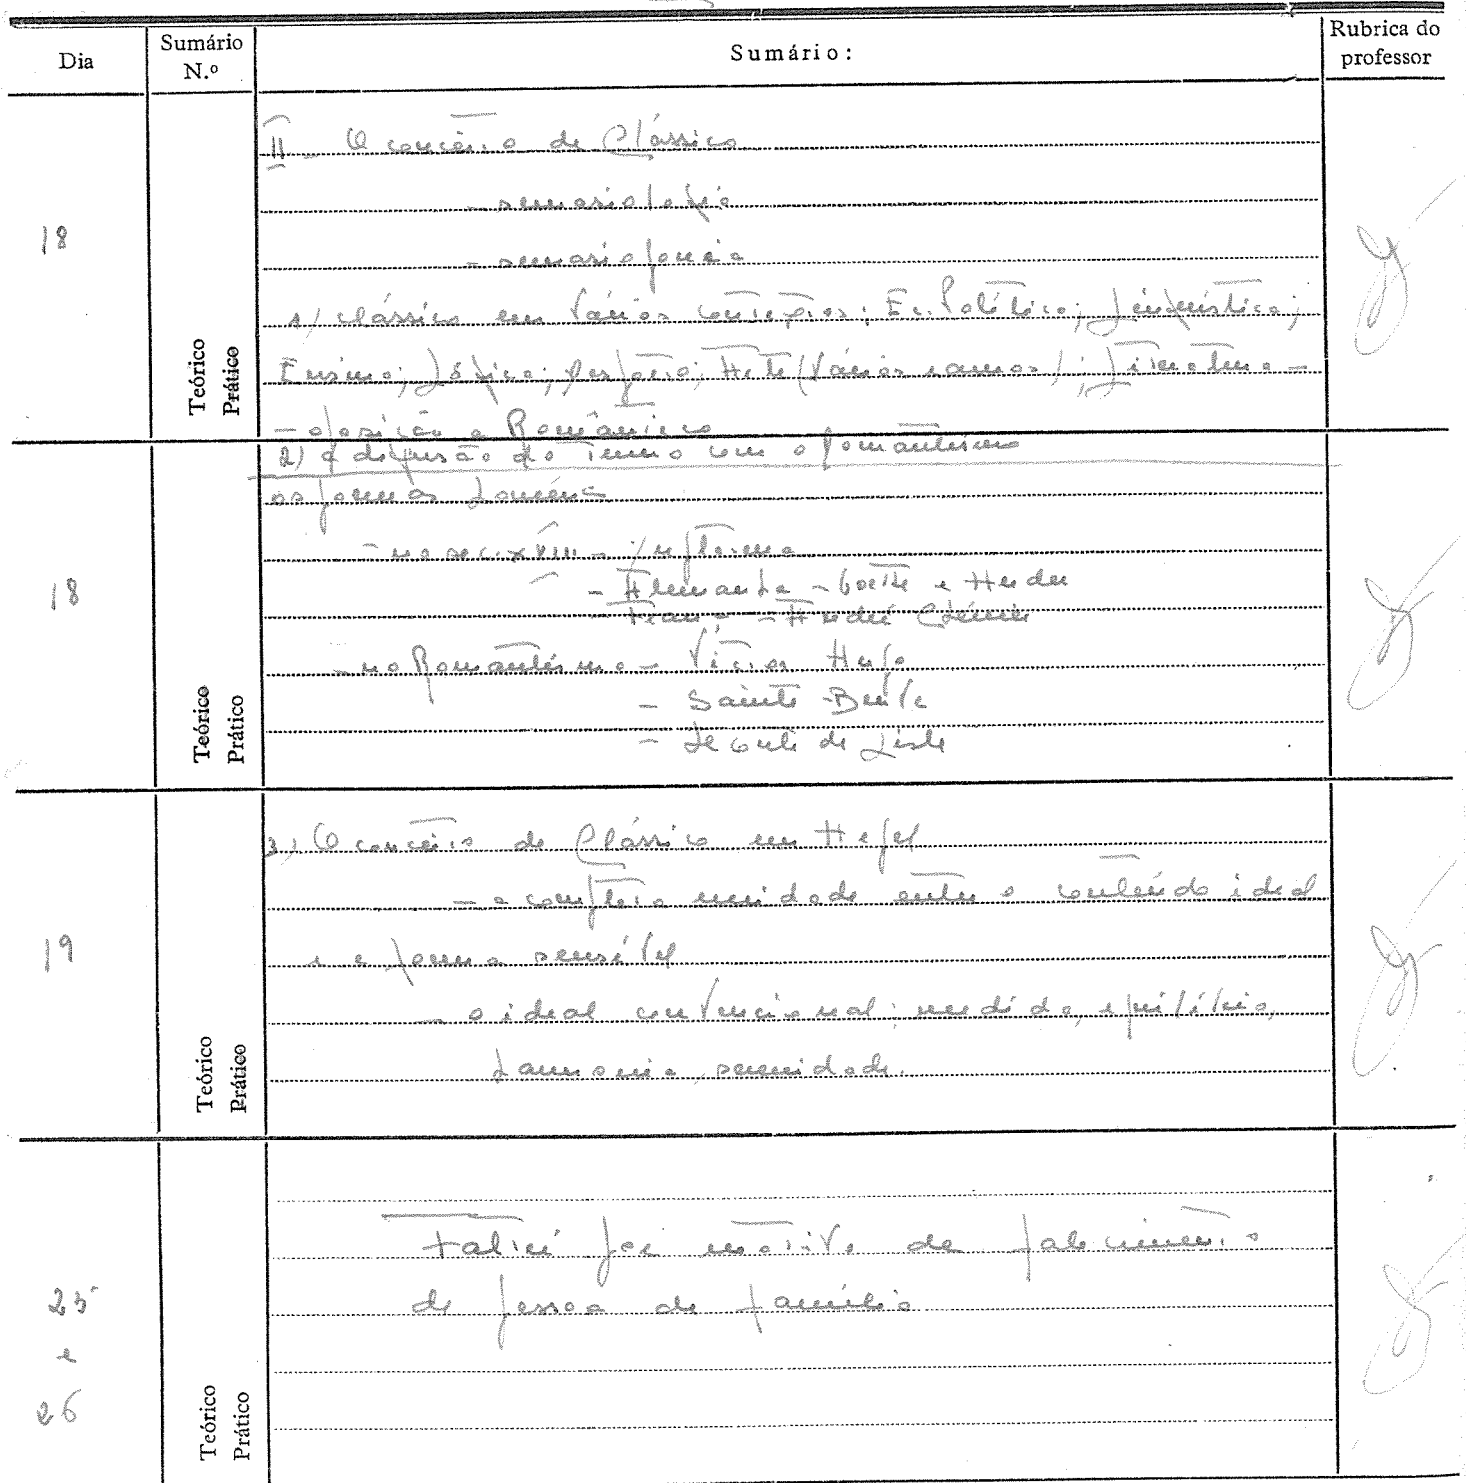 Dia
Sumário N.º
Sumário:
Rubrica do professor
18
Teórico
Prático
II - O conceito de Clássico
- semasiologia
- semasiofonia
1) clássico em vários contextos: Ec. Política; Linguística;
Ensino; Lógica; Desporto; Arte (vários ramos); Literatura -
- oposição a Romântico
18
Teórico
Prático
2) a difusão do termo com o Romantismo
- no séc. XVIII - Inglaterra
- Alemanha - Goethe e Herder
- França - André Chénier
- no Romantismo - Victor Hugo
- Sainte-Beuve
- Leconte de Lisle
19
Teórico
Prático
3) O conceito de Clássico em Hegel
- a completa unidade entre o conteúdo ideal
e a forma sensível
- o ideal convencional: medida, equilíbrio,
harmonia, serenidade.
25
e
26
Teórico
Prático
Faltei por motivo de falecimento
de pessoa de família